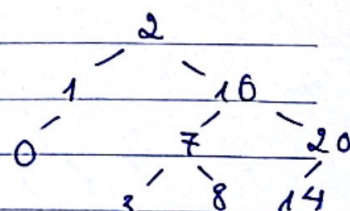 2
1 10
0 7 20
3 8 14